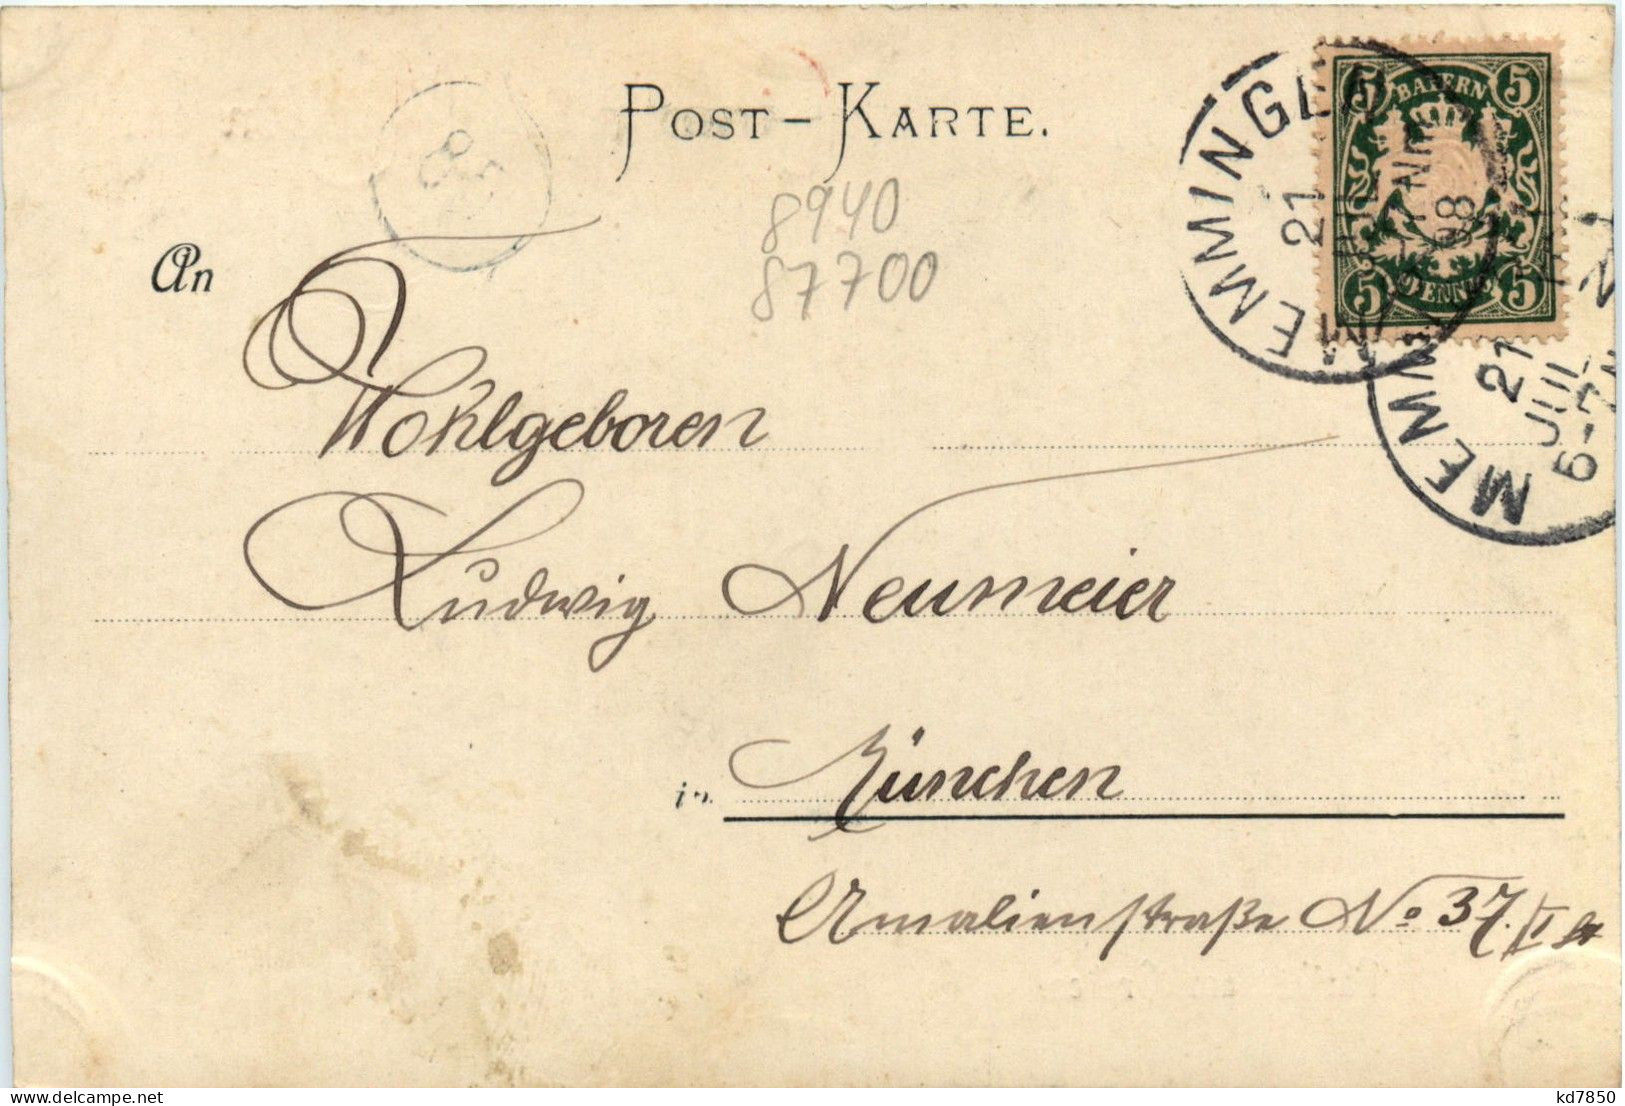 POST-KARTE.
8940
87700
An
Wohlgeboren
Ludwig Neumeier
in München
Amalienstraße No 37. I
BAYERN
5 5
5 5
PFENNIG
MEMMINGEN
21
98
MEMMI
21
JUL
6-7 N
kd7850